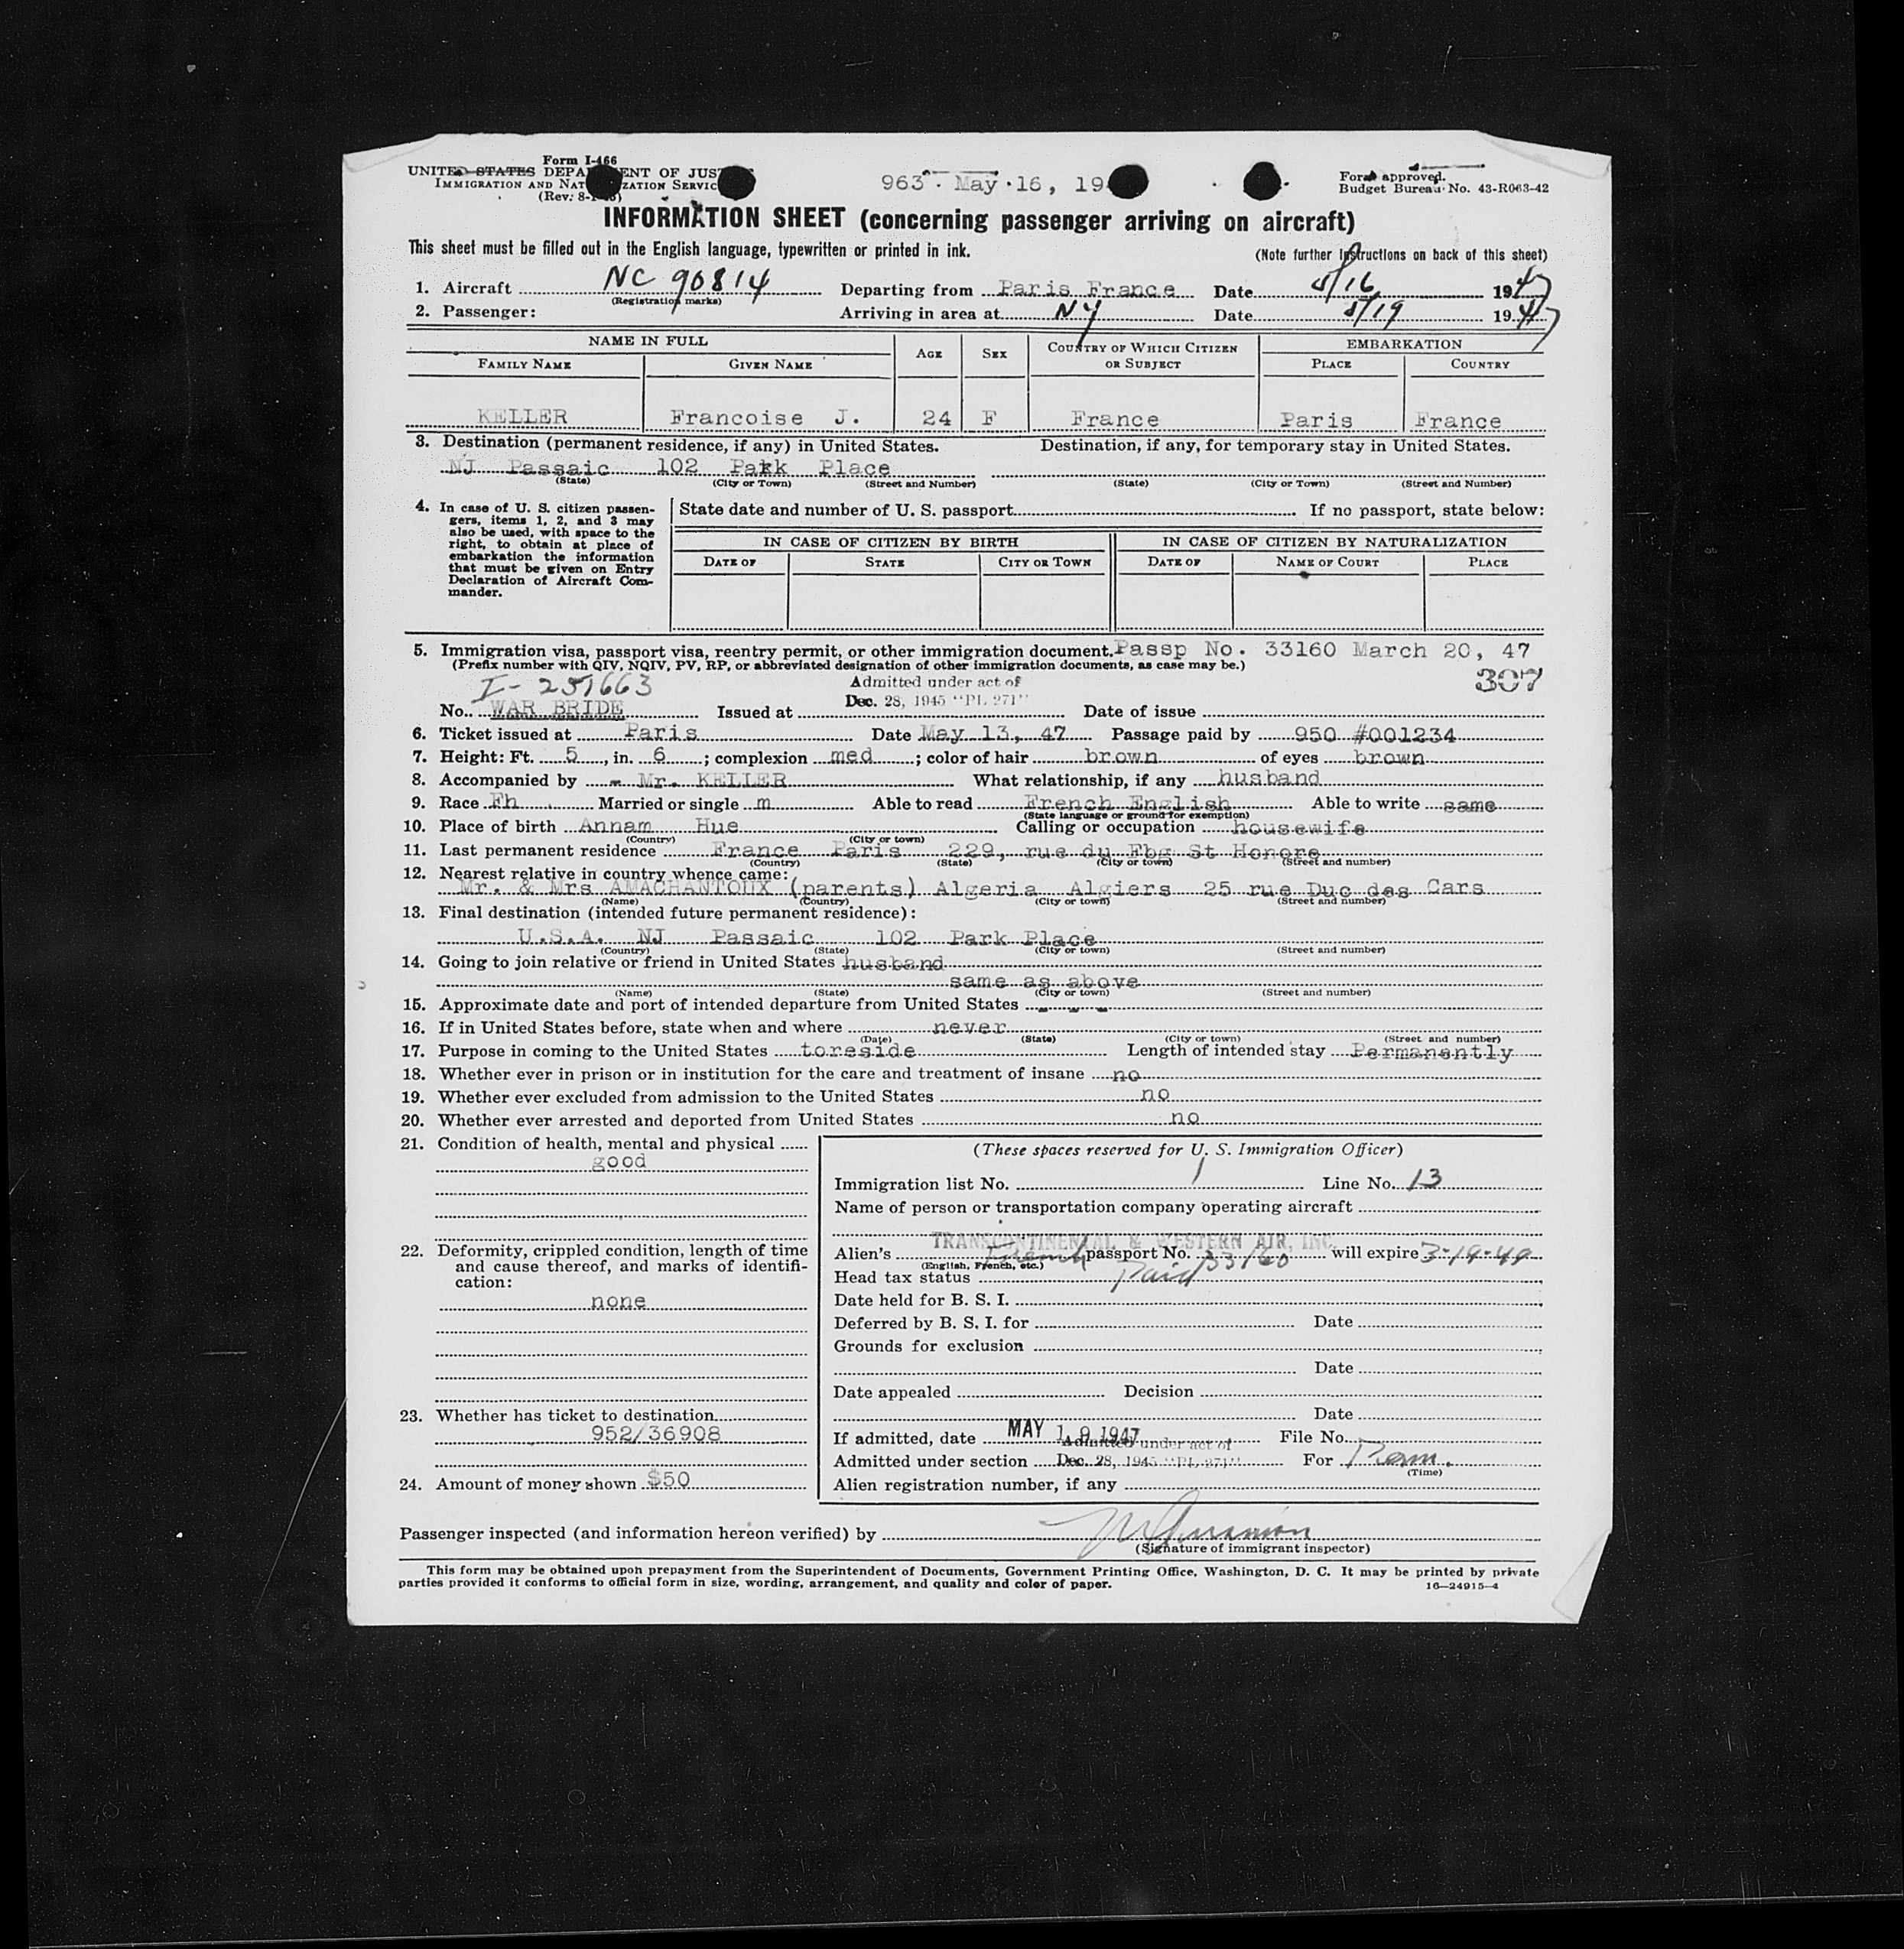 Form I-466
UNITED STATES DEPA ENT OF JUS
IMMIGRATION AND NAT ZATION SERVIC
(Rev. 8-1-45)
963 May 16, 19
Form approved.
Budget Bureau No. 43-R063-42
INFORMATION SHEET (concerning passenger arriving on aircraft)
This sheet must be filled out in the English language, typewritten or printed in ink. (Note further instructions on back of this sheet)
1. Aircraft NC 90814 Departing from Paris France Date 5/16 1947
(Registration marks)
2. Passenger: Arriving in area at NY Date 5/19 1947
NAME IN FULL AGE SEX COUNTRY OF WHICH CITIZEN OR SUBJECT EMBARKATION
FAMILY NAME GIVEN NAME PLACE COUNTRY
KELLER Francoise J. 24 F France Paris France
3. Destination (permanent residence, if any) in United States. Destination, if any, for temporary stay in United States.
NJ Passaic 102 Park Place
(State) (City or Town) (Street and Number) (State) (City or Town) (Street and Number)
4. In case of U. S. citizen passen-
gers, items 1, 2, and 3 may
also be used, with space to the
right, to obtain at place of
embarkation the information
that must be given on Entry
Declaration of Aircraft Com-
mander.
State date and number of U. S. passport If no passport, state below:
IN CASE OF CITIZEN BY BIRTH IN CASE OF CITIZEN BY NATURALIZATION
DATE OF STATE CITY OR TOWN DATE OF NAME OF COURT PLACE
5. Immigration visa, passport visa, reentry permit, or other immigration document. Passp No. 33160 March 20, 47
(Prefix number with QIV, NQIV, PV, RP, or abbreviated designation of other immigration documents, as case may be.)
I-251663 Admitted under act of 307
Dec. 28, 1945 "PL 271"
No. WAR BRIDE Issued at Date of issue
6. Ticket issued at Paris Date May 13, 47 Passage paid by 950 #001234
7. Height: Ft. 5, in. 6; complexion med; color of hair brown of eyes brown
8. Accompanied by - Mr. KELLER What relationship, if any husband
9. Race Fh Married or single m Able to read French English Able to write same
(State language or ground for exemption)
10. Place of birth Annam Hue Calling or occupation housewife
(Country) (City or town)
11. Last permanent residence France Paris 229, rue du Fbg St Honore
(Country) (State) (City or town) (Street and number)
12. Nearest relative in country whence came:
Mr. & Mrs AMACHANTOUX (parents) Algeria Algiers 25 rue Duc des Cars
(Name) (Country) (City or town) (Street and number)
13. Final destination (intended future permanent residence):
U.S.A. NJ Passaic 102 Park Place
(Country) (State) (City or town) (Street and number)
14. Going to join relative or friend in United States husband
same as above
(Name) (State) (City or town) (Street and number)
15. Approximate date and port of intended departure from United States - - -
16. If in United States before, state when and where never
(Date) (State) (City or town) (Street and number)
17. Purpose in coming to the United States toreside Length of intended stay Permanently
18. Whether ever in prison or in institution for the care and treatment of insane no
19. Whether ever excluded from admission to the United States no
20. Whether ever arrested and deported from United States no
21. Condition of health, mental and physical
good
22. Deformity, crippled condition, length of time
and cause thereof, and marks of identifi-
cation:
none
23. Whether has ticket to destination
952/36908
24. Amount of money shown $50
(These spaces reserved for U. S. Immigration Officer)
Immigration list No. 1 Line No. 13
Name of person or transportation company operating aircraft
TRANSCONTINENTAL & WESTERN AIR, INC.
Alien's French passport No. 33160 will expire 3-19-49
(English, French, etc.)
Head tax status Paid
Date held for B. S. I.
Deferred by B. S. I. for Date
Grounds for exclusion
Date
Date appealed Decision
Date
If admitted, date MAY 19 1947 File No.
Admitted under act of
Admitted under section Dec. 28, 1945 "PL 271" For Perm.
(Time)
Alien registration number, if any
Passenger inspected (and information hereon verified) by
(Signature of immigrant inspector)
This form may be obtained upon prepayment from the Superintendent of Documents, Government Printing Office, Washington, D. C. It may be printed by private
parties provided it conforms to official form in size, wording, arrangement, and quality and color of paper. 16—24915-4